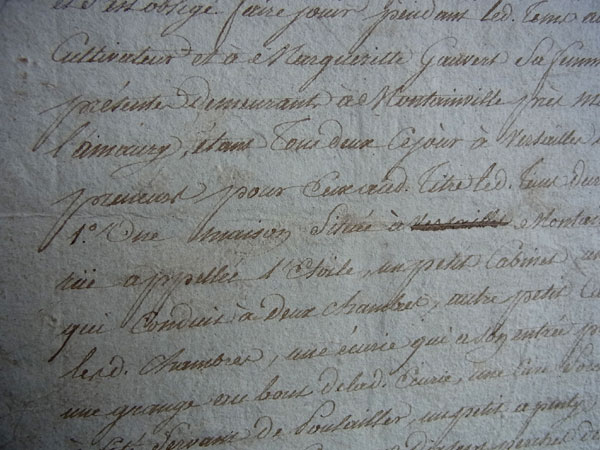 et s'est obligé faire jouir pendant led. tems a
Cultivateur et à Marguerille Gauvert sa femme
présente demeurants à Montainville près m
l'amaury, étant tous deux cejour à Versailles
preneurs pour Eux aud. titre led. tems dur
1.° Une maison située à Versailles Montain
rüe appellée l'Etoile, un petit Cabinet au
qui Conduit à deux chambres, autre petit Ca
lesd. chambres, une écurie qui a son entrée p
une grange au bout delad. Écurie, une
Servant de Poulailler, un petit